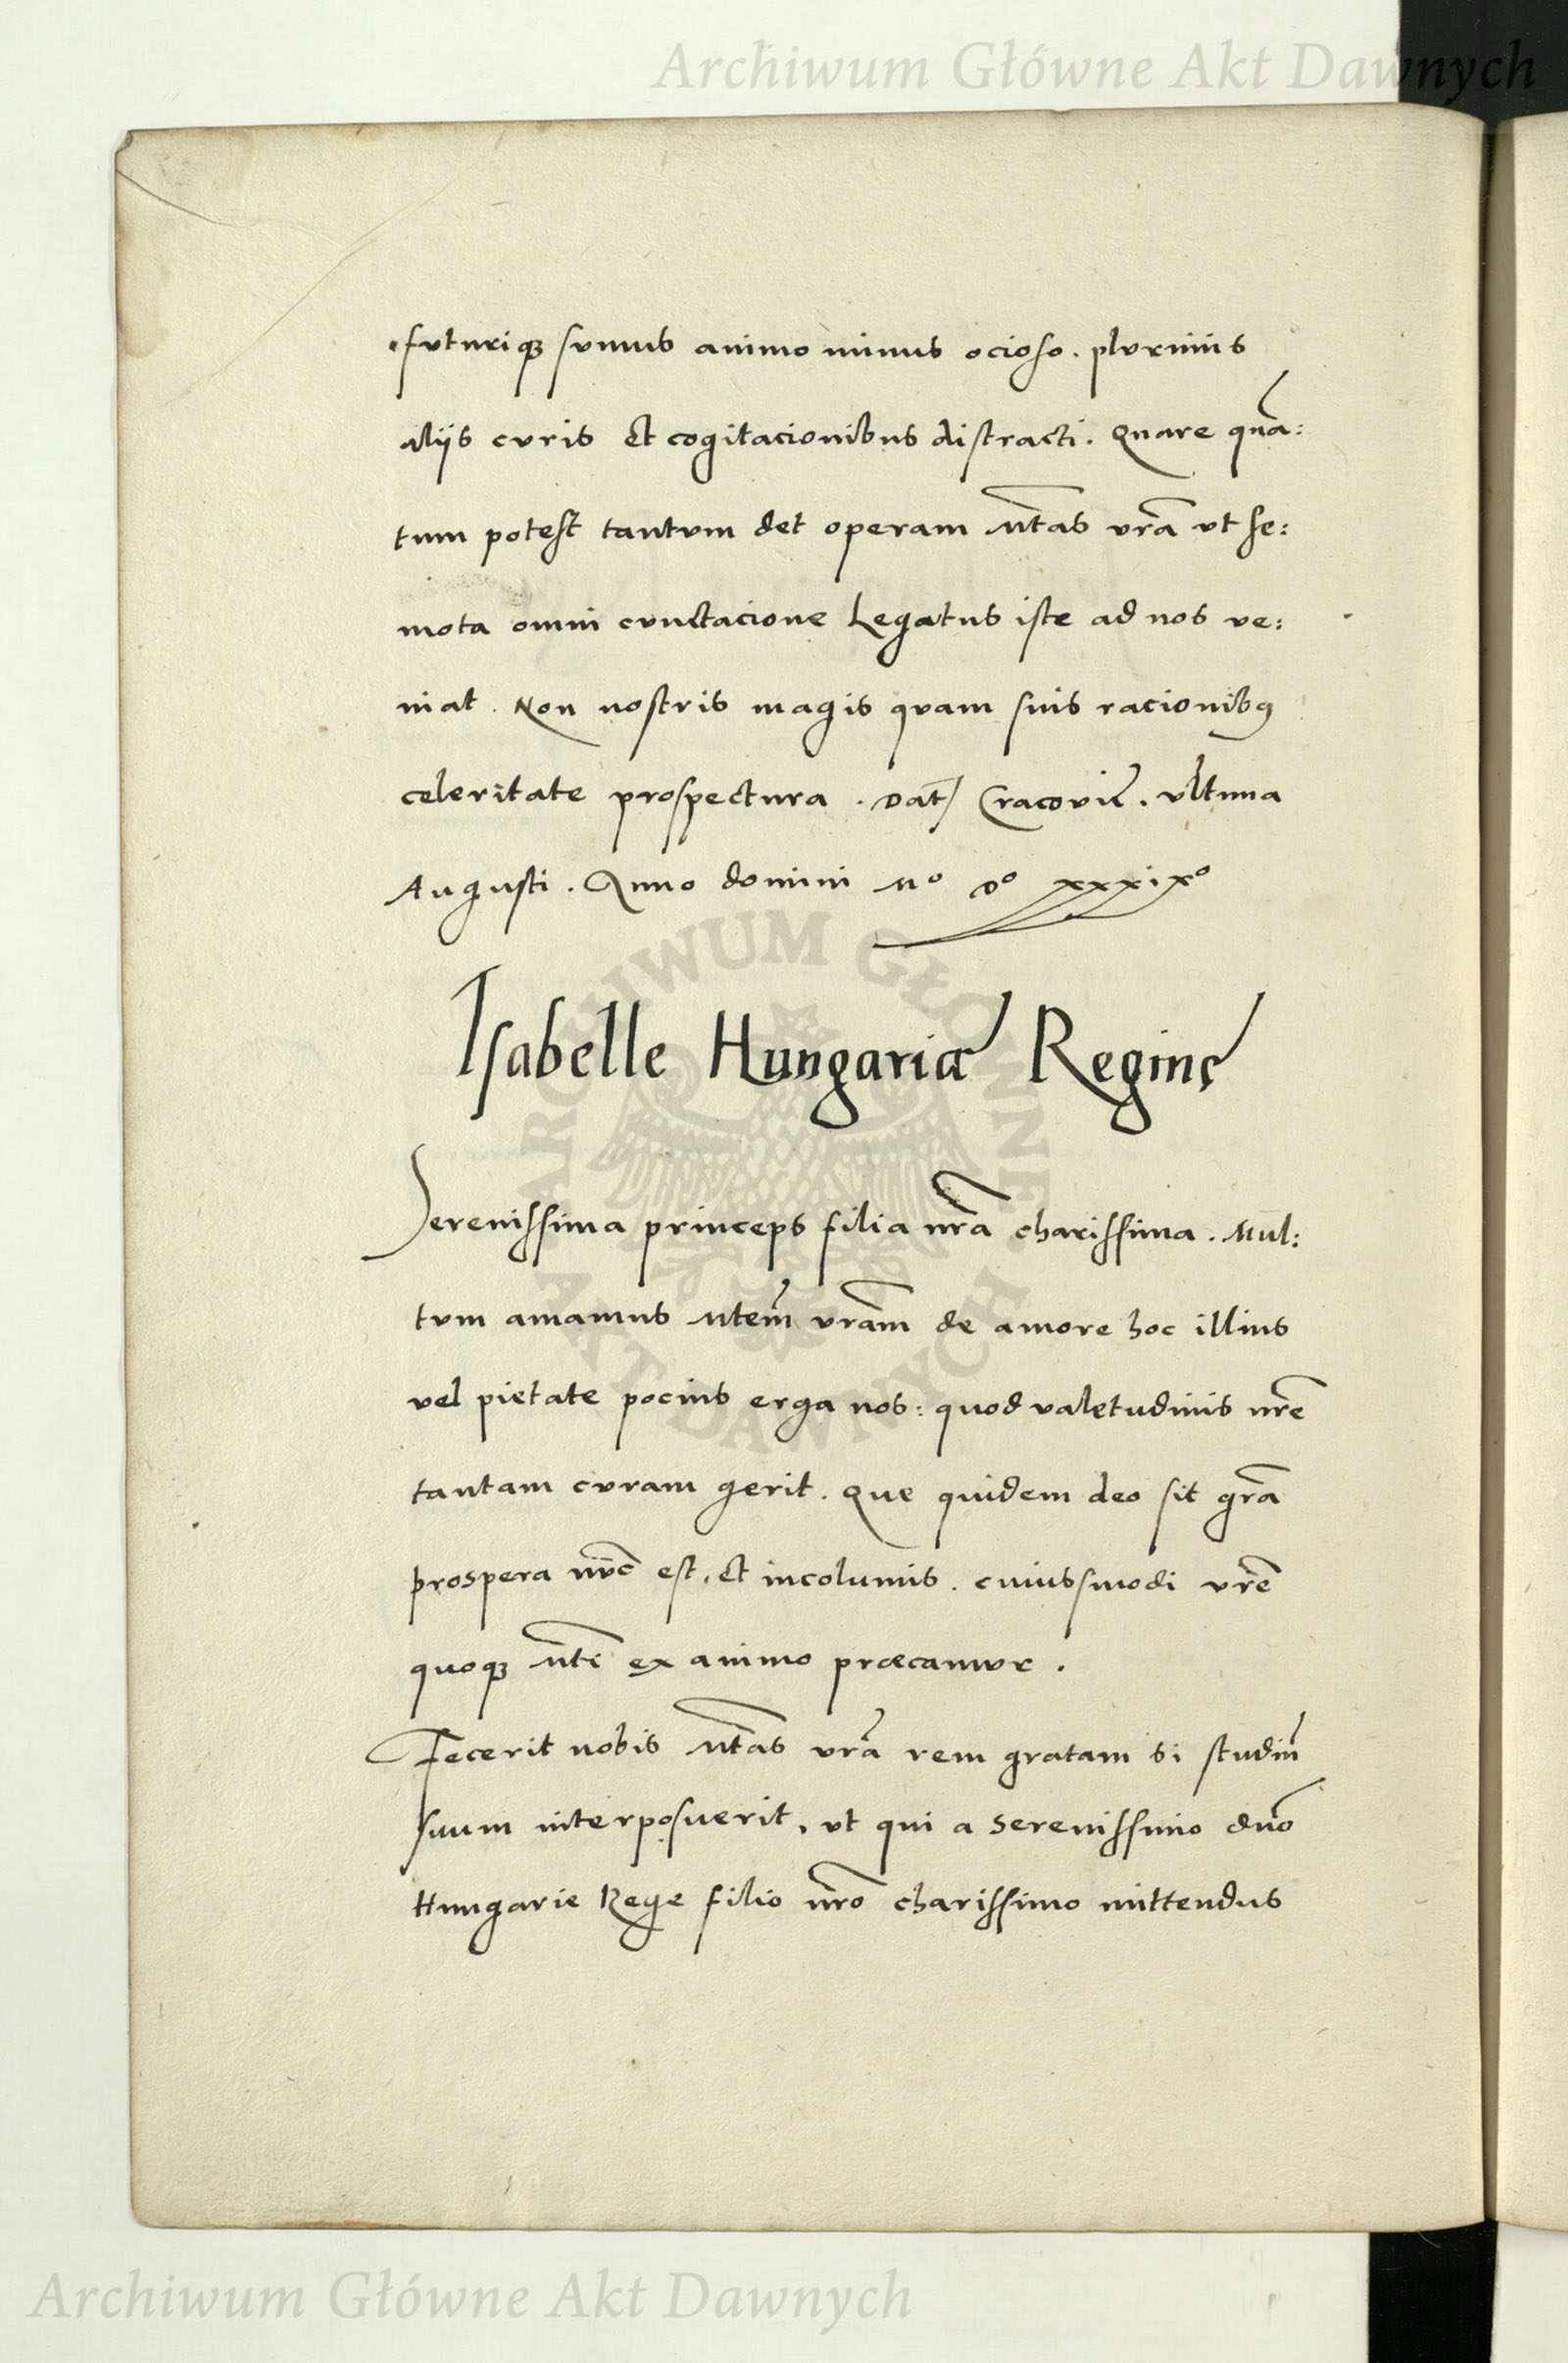 Archiwum Główne Akt Dawnych
futuriqꝫ sumus animo minus ocioso. plurimis
aliis curis et cogitacionibus distracti. Quare quā:
tum potest tantum det operam Mtas vrā ut se:
mota omni cunctacione Legatus iste ad nos ve:
niat. Non nostris magis quam suis racionibꝰ
celeritate prospectura. Dat Cracovie. ultima
Augusti. Anno domini Mº Dº xxxixº
Isabelle Hungariæ Reginę
Serenissima princeps filia nrā charissima. Mul:
tum amamus Mtem vrām de amore hoc illius
vel pietate pocius erga nos: quod valetudinis nrē
tantam curam gerit. Que quidem deo sit grā
prospera nūc est, et incolumis. cuiussmodi vrē
quoqꝫ Mti ex animo præcamur.
Fecerit nobis Mtas vrā rem gratam si studiū
suum interposuerit, ut qui a Serenissimo dnō
Hungarie Rege filio nrō charissimo mittendus
ARCHIWUM GŁÓWNE AKT DAWNYCH
Archiwum Główne Akt Dawnych